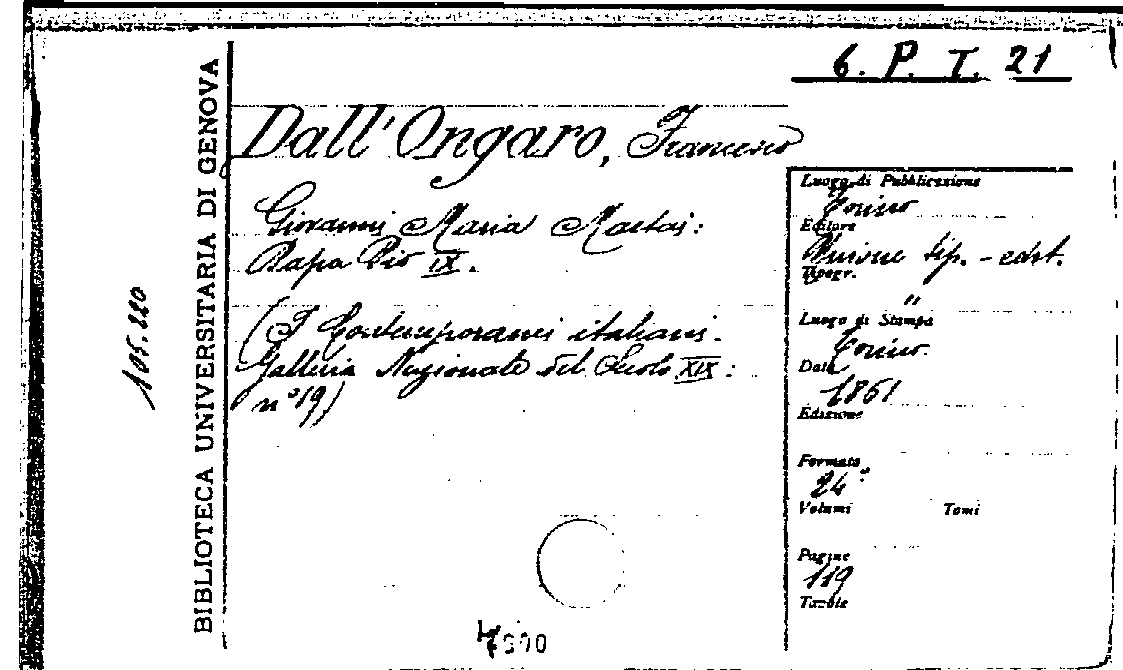 6. P. I. 21
BIBLIOTECA UNIVERSITARIA DI GENOVA
105.220
Dall'Ongaro, Francesco
Giovanni Maria Mastai:
Papa Pio IX.
(I Contemporanei italiani.
Galleria Nazionale del Secolo XIX:
n° 19)
Luogo di Pubblicazione
Torino
Editore
Unione tip. - edit.
Tipogr.
"
Luogo di Stampa
Torino.
Data
1861
Edizione
Formato
24°
Volumi Tomi
Pagine
119
Tavole